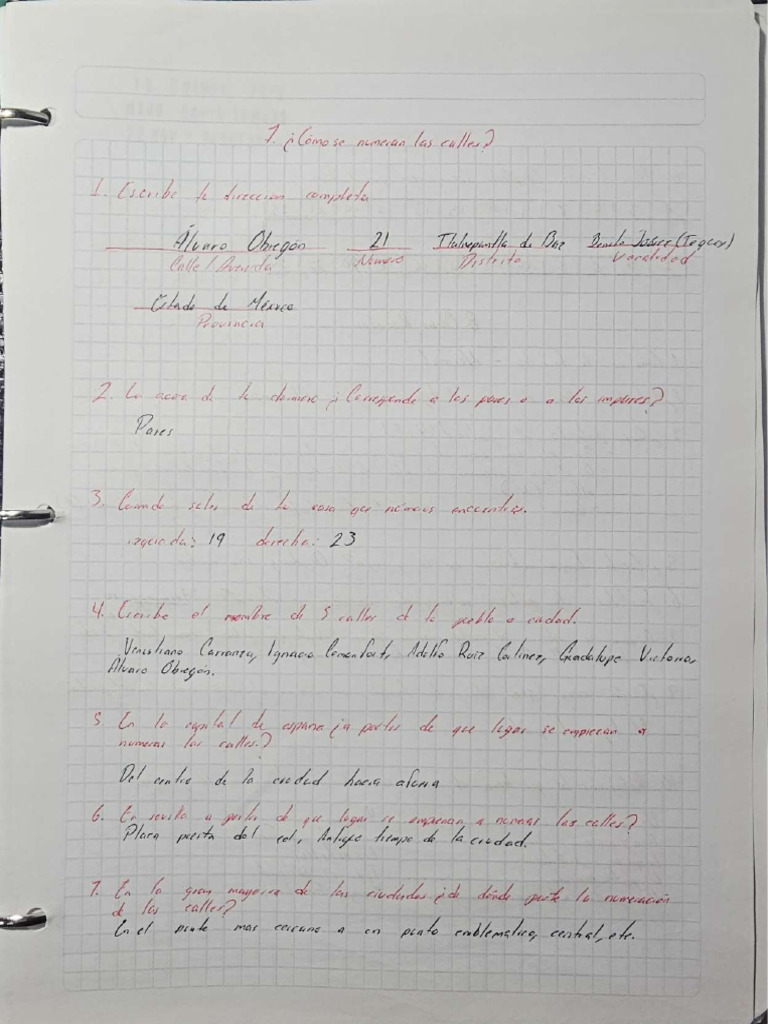 7. ¿Cómo se numeran las calles?
1. Escribe tu direccion completa
Álvaro Obregón 21 Tlalnepantla de Baz Benito Juárez (Tequex)
Calle / Avenida Número Distrito Localidad
Estado de México
Provincia
2. La acera de tu domicilio ¿Corresponde a los pares o a los impares?
Pares
3. Cuando sales de tu casa que números encuentras.
izquierda: 19 derecha: 23
4. Escribe el nombre de 5 calles de tu pueblo o ciudad.
Venustiano Carranza, Ignacio Comonfort, Adolfo Ruiz Cortinez, Guadalupe Victoria,
Álvaro Obregón.
5. En la capital de españa ¿a partir de que lugar se empiezan a
numerar las calles?
Del centro de la ciudad hacia afuera
6. En sevilla a partir de que lugar se empiezan a numerar las calles?
Plaza puerta del sol, Antiguo tiempo de la ciudad.
7. En la gran mayoria de las ciudades ¿de dónde parte la numeración
de las calles?
En el punto mas cercano a un punto emblematico, central, etc.